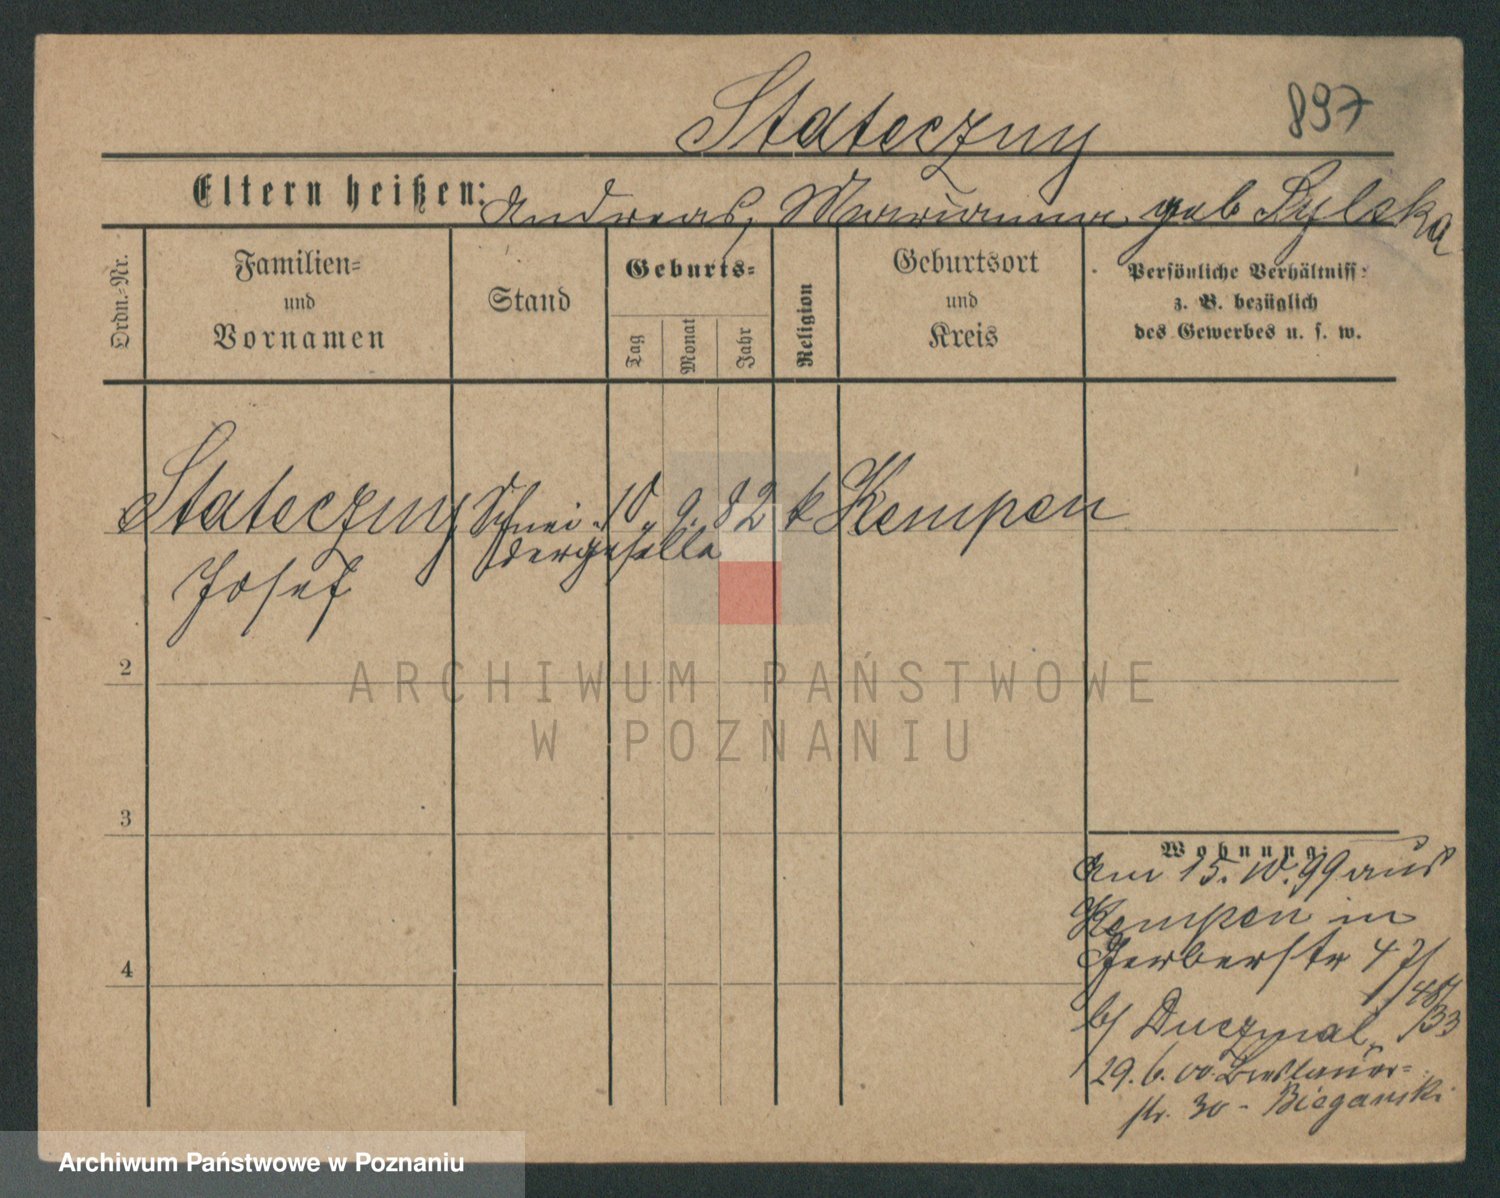 897
Stateczny
Eltern heißen: Andreas, Marianna geb Sylska
Ordn.-Nr.
Familien-
und
Vornamen
Stand
Geburts-
Tag
Monat
Jahr
Religion
Geburtsort
und
Kreis
Persönliche Verhältniss:
z. B. bezüglich
des Gewerbes u. s. w.
Stateczny Schnei- 10 9. 82 k Kempen
Josef dergeselle
2
3
4
ARCHIWUM PAŃSTWOWE
W POZNANIU
Wohnung:
Am 15. 10. 99 aus
Kempen in
Gerberstr 47/
48/
b/ Duczmal 33
29. 6. 00. Breslauer-
str. 30 - Bieganski
Archiwum Państwowe w Poznaniu